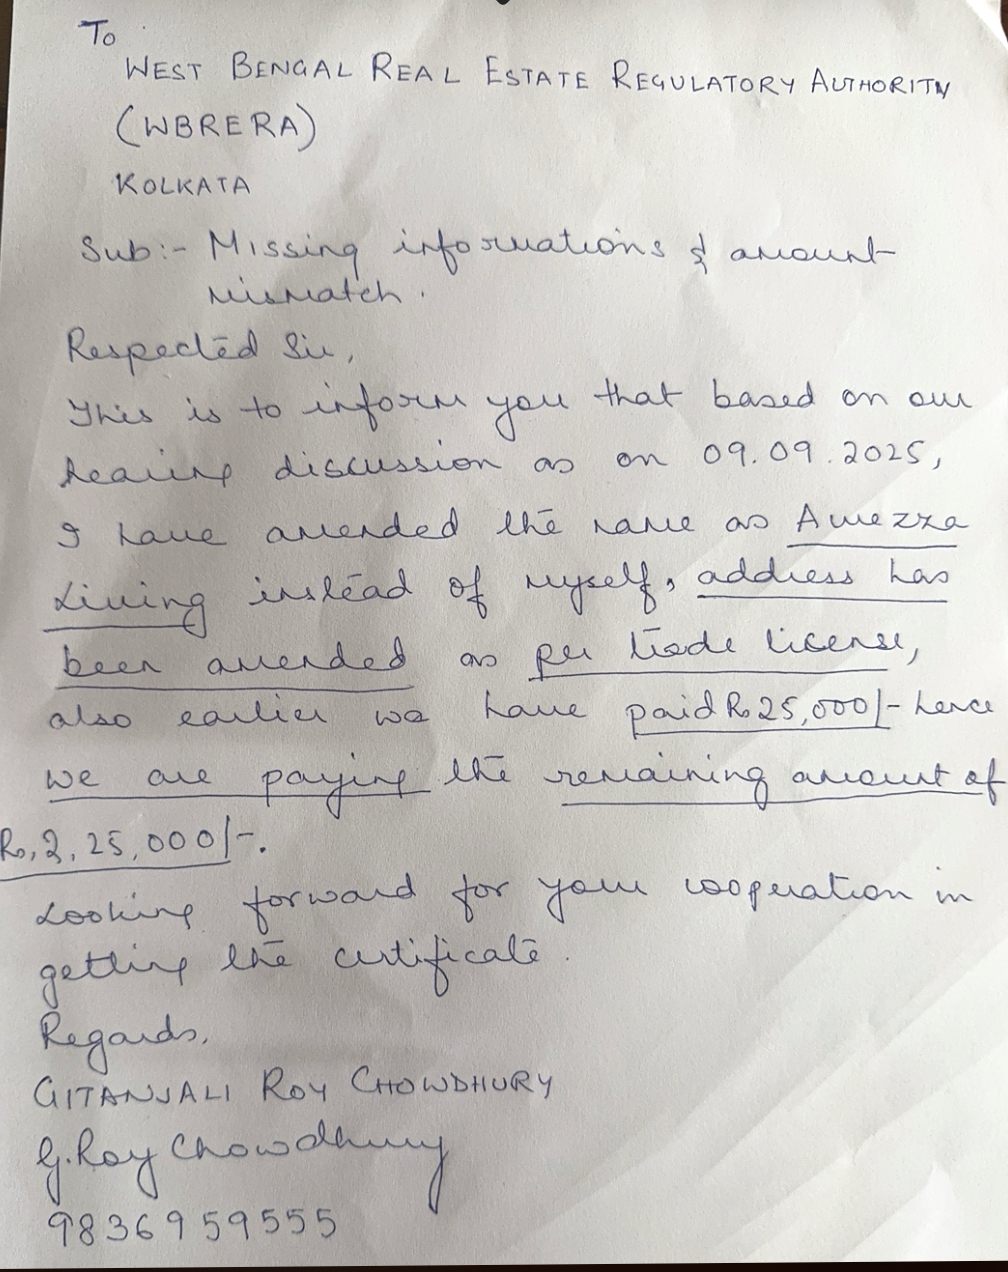 To
WEST BENGAL REAL ESTATE REGULATORY AUTHORITY
(WBRERA)
KOLKATA
Sub:- Missing informations & amount
mismatch.
Respected Sir,
This is to inform you that based on our
hearing discussion as on 09.09.2025,
I have amended the name as Amezza
Living instead of myself, address has
been amended as per trade license,
also earlier we have paid Rs 25,000/- hence
we are paying the remaining amount of
Rs, 2,25,000/-.
Looking forward for your cooperation in
getting the certificate.
Regards,
GITANJALI ROY CHOWDHURY
G. Roy Chowdhury
9836959555